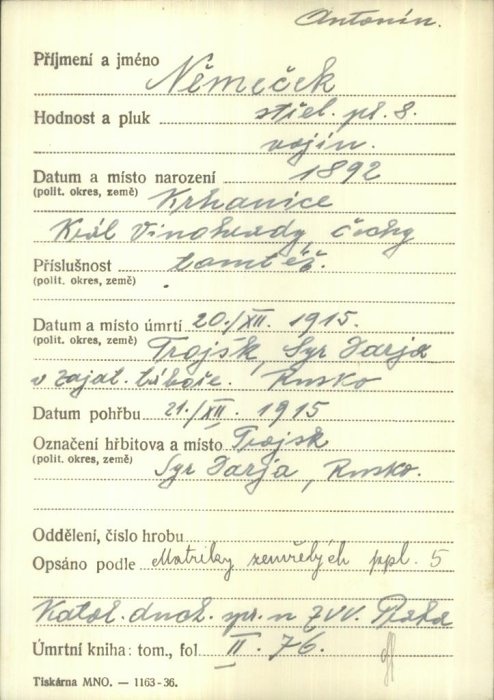 Antonín.
Příjmení a jméno Němeček
Hodnost a pluk střel. pl. 8.
vojín.
Datum a místo narození 1892
(polit. okres, země) Krhanice
Král Vinohrady, Čechy
Příslušnost tamtéž.
(polit. okres, země)
Datum a místo úmrtí 20./XII. 1915.
(polit. okres, země) Trojšk, Syr Darja
v zajat. táboře. Rusko
Datum pohřbu 21./XII. 1915
Označení hřbitova a místo Trojsk
(polit. okres, země) Syr Darja, Rusko.
Oddělení, číslo hrobu
Opsáno podle Matriky zemřelých ppl. 5
Katol. duch. spr. n ZVV. Praha
Úmrtní kniha: tom., fol II. 76.
Tiskárna MNO. — 1163-36.